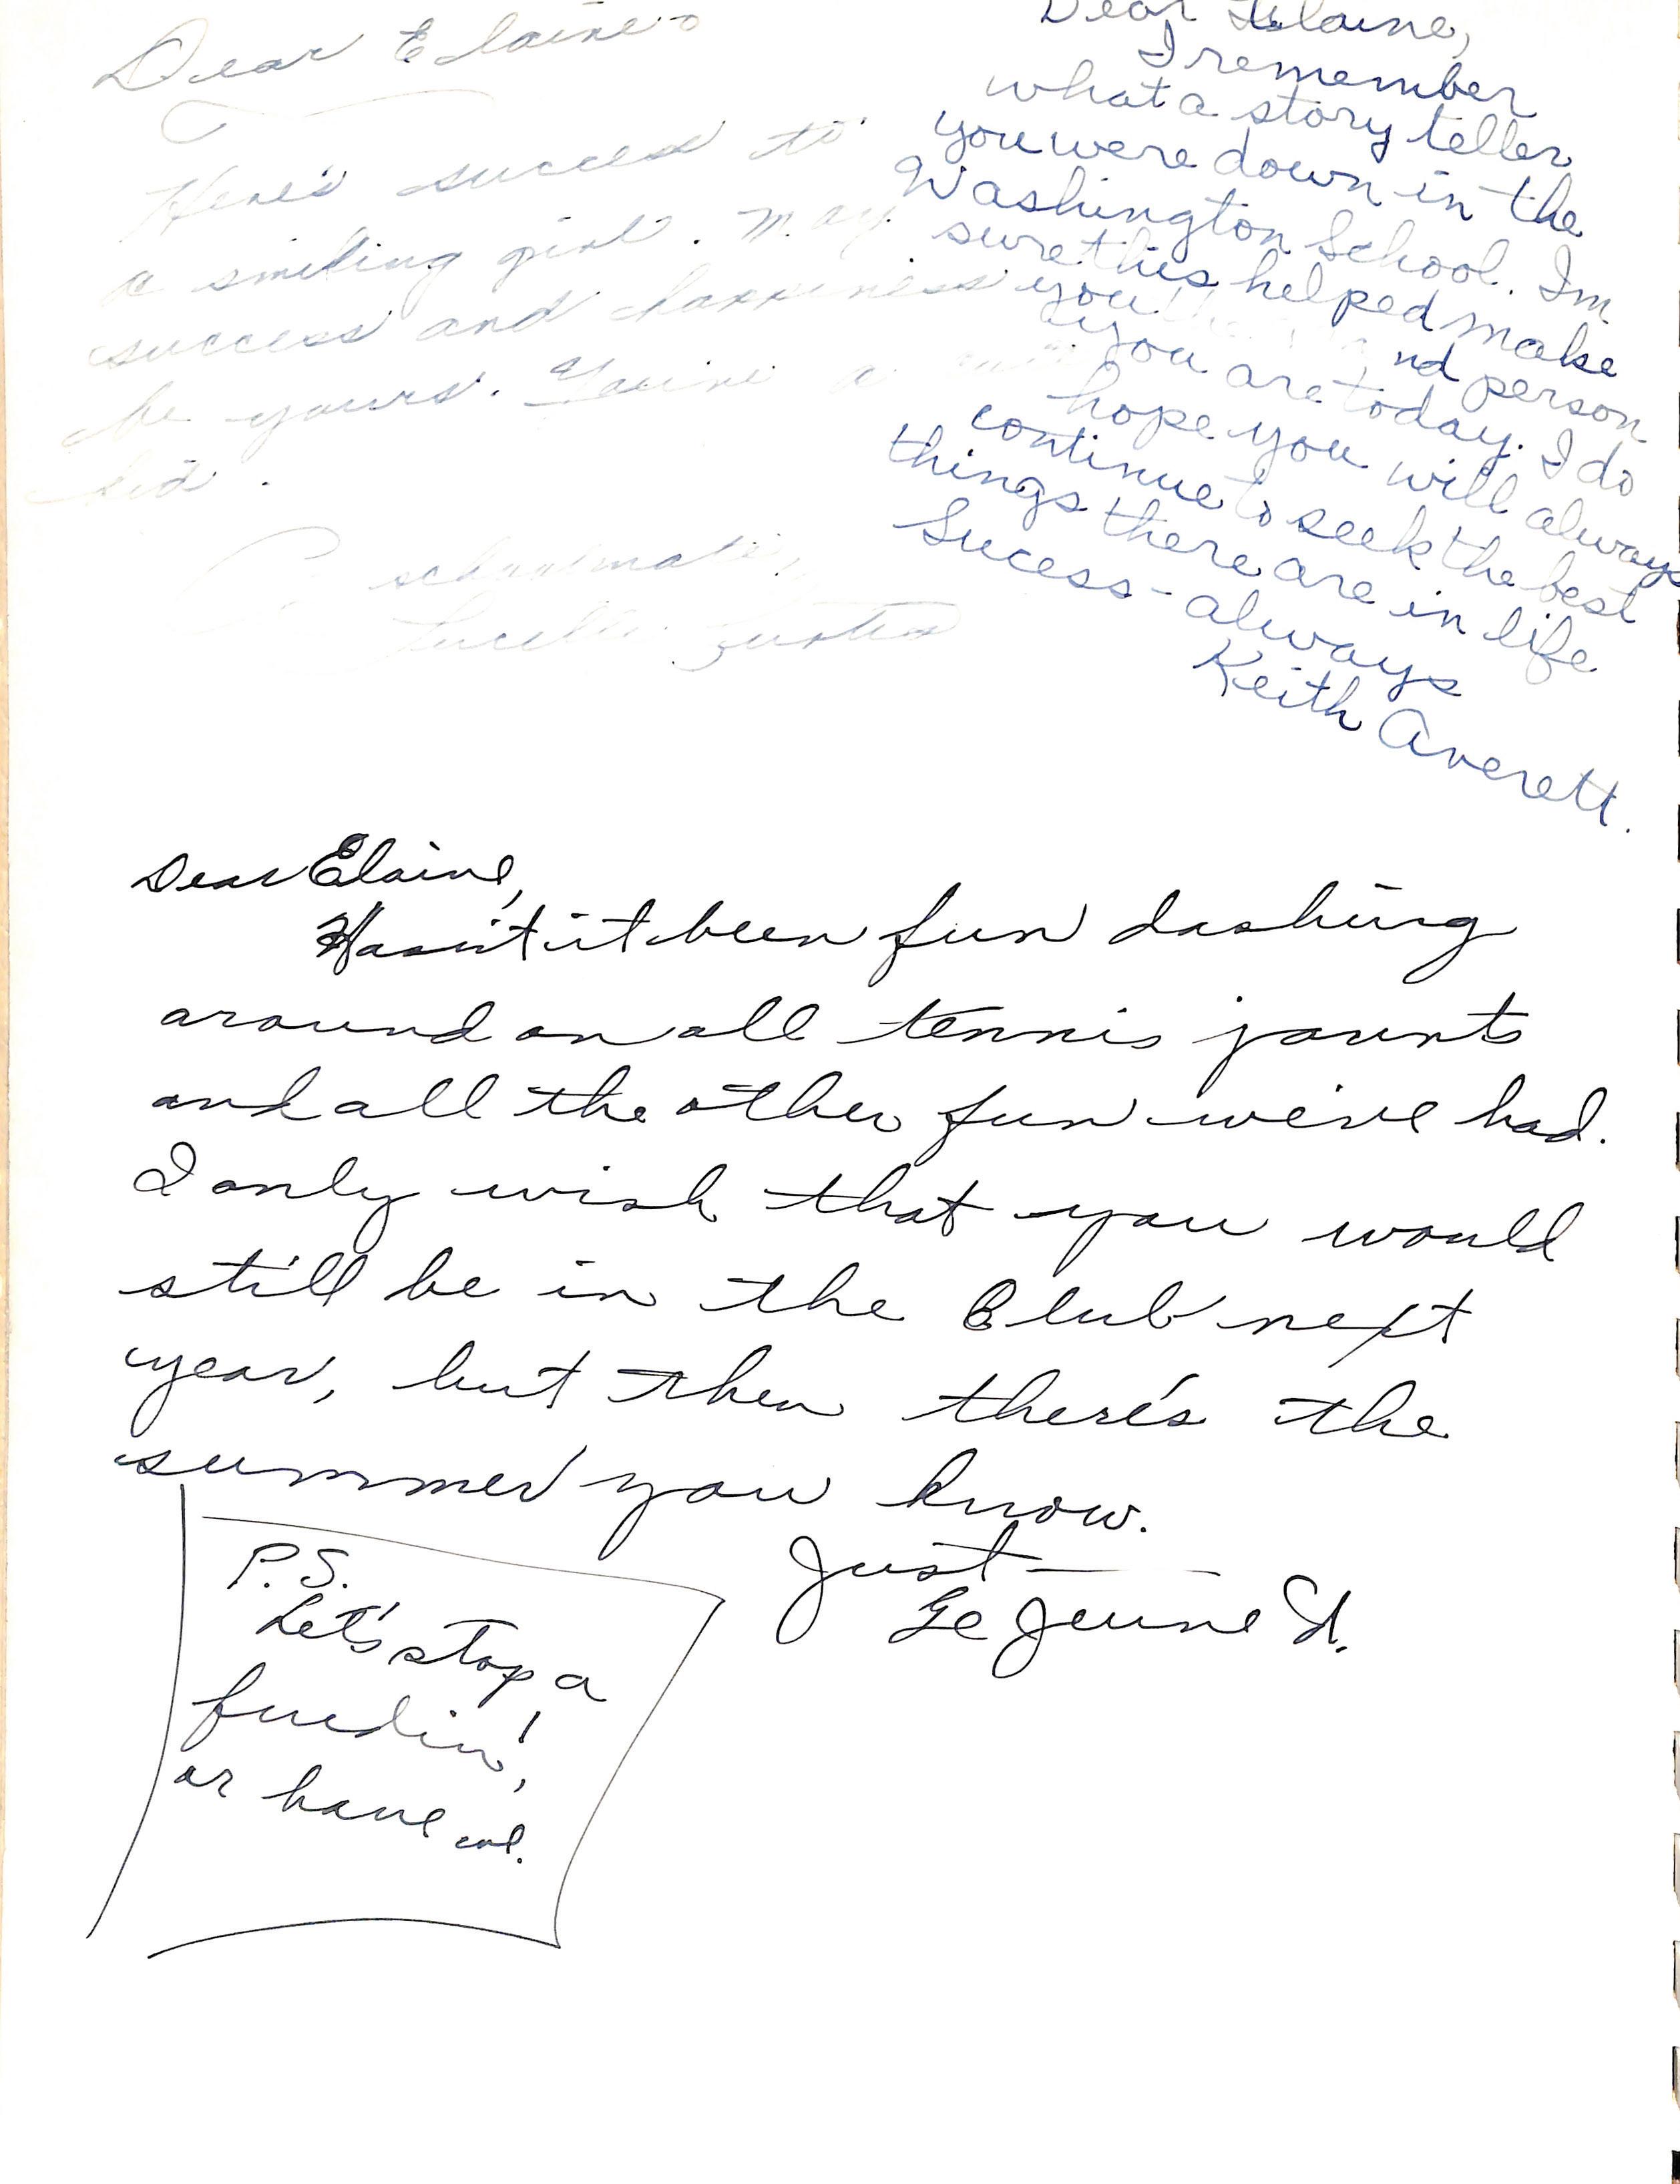 Dear Elaine -
Here's success to
a smiling girl. May
success and happiness
be yours. You're a
kid.
A schoolmate,
Lucille
Dear Elaine,
I remember
what a story teller
you were down in the
Washington School. Im
sure this helped make
you person
you are today. I do
hope you will always
continue to seek the best
things there are in life
Sucess - always
Keith Averett.
Dear Elaine,
Hasn't it been fun dashing
around on all tennis jaunts
and all the other fun we've had.
I only wish that you would
still be in the Club next
year, but then there's the
summer you know.
Just —
Le Jeune
P.S.
Let's stop a
fuedin'!,
or have we.